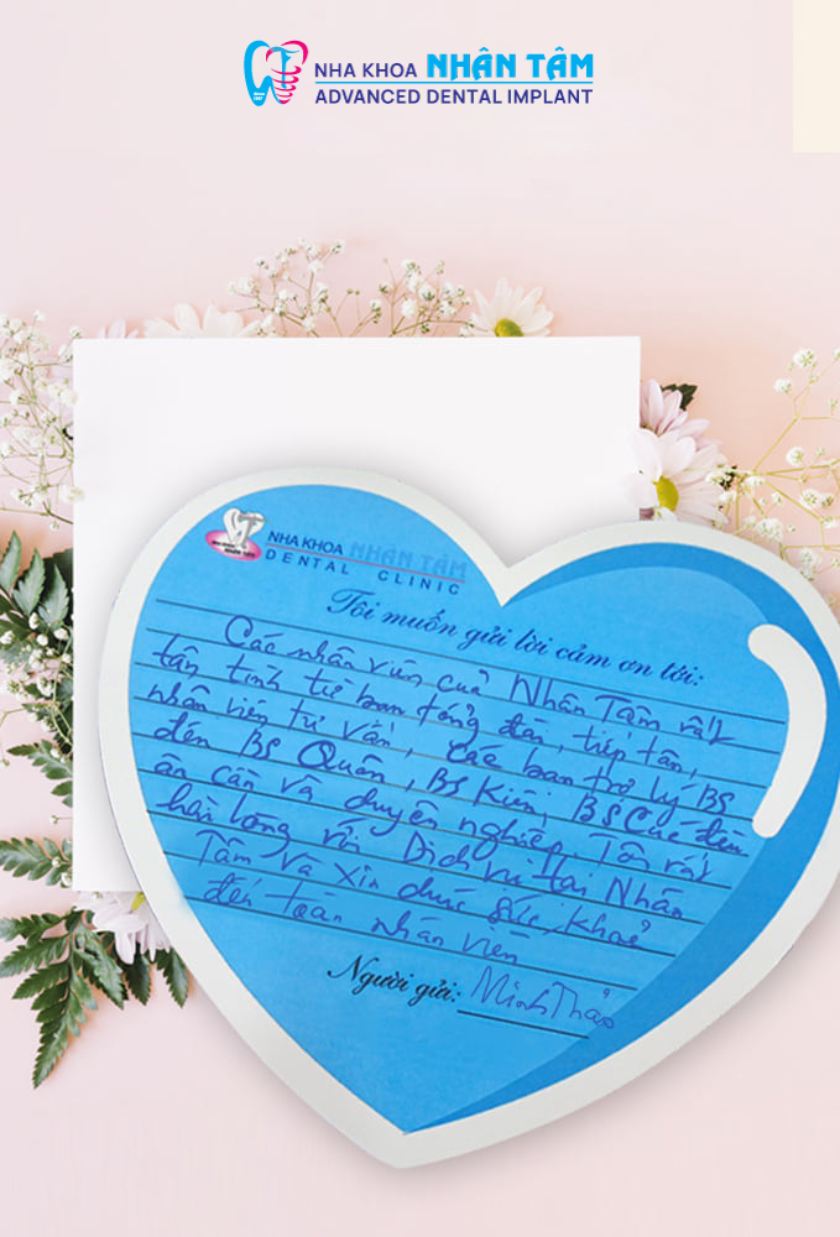 NHA KHOA NHÂN TÂM
ADVANCED DENTAL IMPLANT
NHA KHOA NHÂN TÂM
DENTAL CLINIC
Tôi muốn gửi lời cảm ơn tới:
Các nhân viên của Nhân Tâm rất
tận tình từ ban tổng đài, tiếp tân,
nhân viên tư vấn, các bạn trợ lý BS
đến BS Quân, BS Kiên, BS Cúc đều
ân cần và chuyên nghiệp. Tôi rất
hài lòng với Dịch vụ tại Nhân
Tâm và xin chúc sức khoẻ
đến toàn nhân viên
Người gửi: Minh Thảo